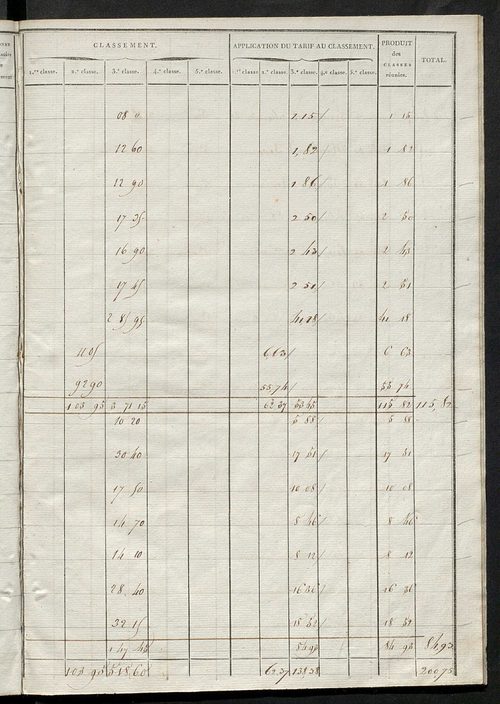 CLASSEMENT. APPLICATION DU TARIF AU CLASSEMENT. PRODUIT des CLASSES réunies. TOTAL.
1.re classe. 2.e classe. 3.e classe. 4.e classe. 5.e classe. 1.re classe 2.e classe. 3.e classe. 4.e classe. 5.e classe.
1,15/ 1 15
12 60 1,82/ 1 82
12 90 1 86/ 1 86
17 35 2 50/ 2 50
16 90 2 43/ 2 43
17 45 2 51/ 2 51
2 85 95 41,18/ 41 18
11 05 6,63/ 6 63
92 90 55,74/ 55 74
103 95 3 71 15 62 37 53 45 115 82 115,82
10 20 5 88/ 5 88
30 40 17 51/ 17 51
17 50 10 08/ 10 08
14 70 8 46/ 8 46
14 10 8 12/ 8 12
28 40 16 36/ 16 36
32 15 18 52/ 18 52
1 47 45 84 93 84 93 84,93
103 95 518 60 62 37 138 38 200 75